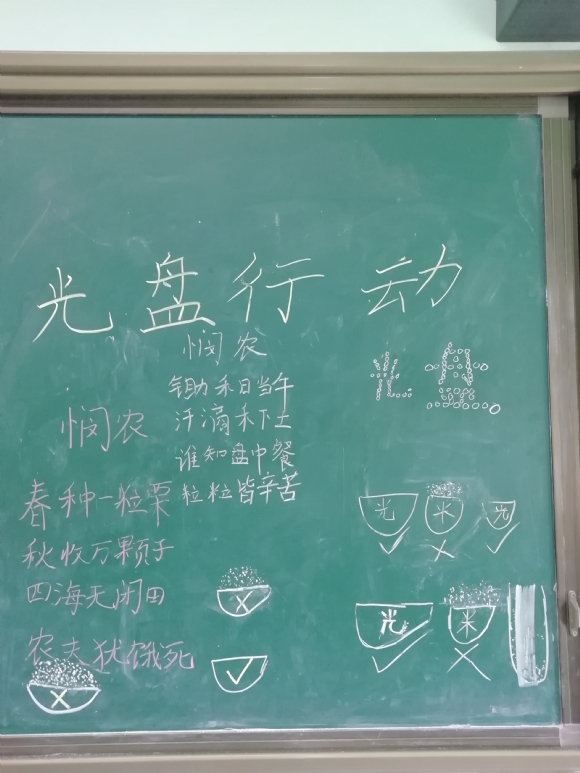 光盘行动
悯农
锄禾日当午
汗滴禾下土
谁知盘中餐
粒粒皆辛苦
悯农
春种一粒栗
秋收万颗子
四海无闲田
农夫犹饿死
光盘
光 米 光
光 米